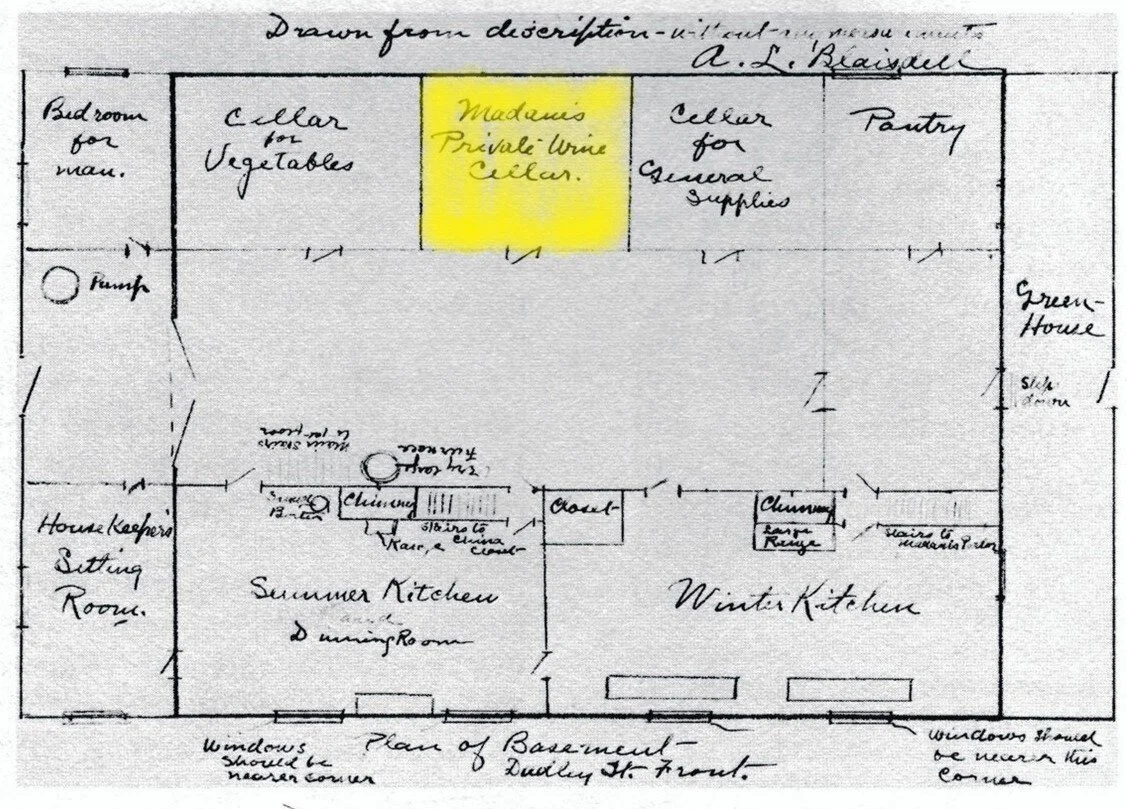 Drawn from description - without
A. L. Blaisdell
Bedroom
for
man.
Cellar
for
Vegetables
Madam's
Private Wine
Cellar.
Cellar
for
General
Supplies
Pantry
Pump
Green-
House
Step
down
Main Stairs
to 1st floor
Very large
Furnace
Chimney
Stairs to
China
Closet
Closet
Chimney
Large
Range
Stairs to
Madam's Parlor
House Keeper's
Sitting
Room.
Summer Kitchen
and
Dinning Room
Winter Kitchen
Windows
should be
nearer corner
Plan of Basement
Dudley St. Front.
Windows should
be nearer this
corner